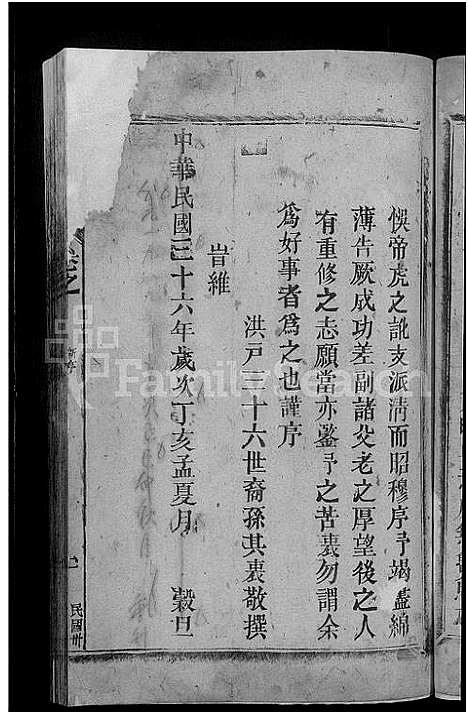 悞帝虎之訛支派淸而昭穆序予竭盡綿
薄告厥成功差副諸父老之厚望後之人
有重修之志願當亦鑒予之苦衷勿謂余
爲好事者爲之也謹序
洪戸三十六世裔孫其衷敬撰
旹維
中華民國三十六年歲次丁亥孟夏月 穀旦
卷之
民國卅
FamilySearch